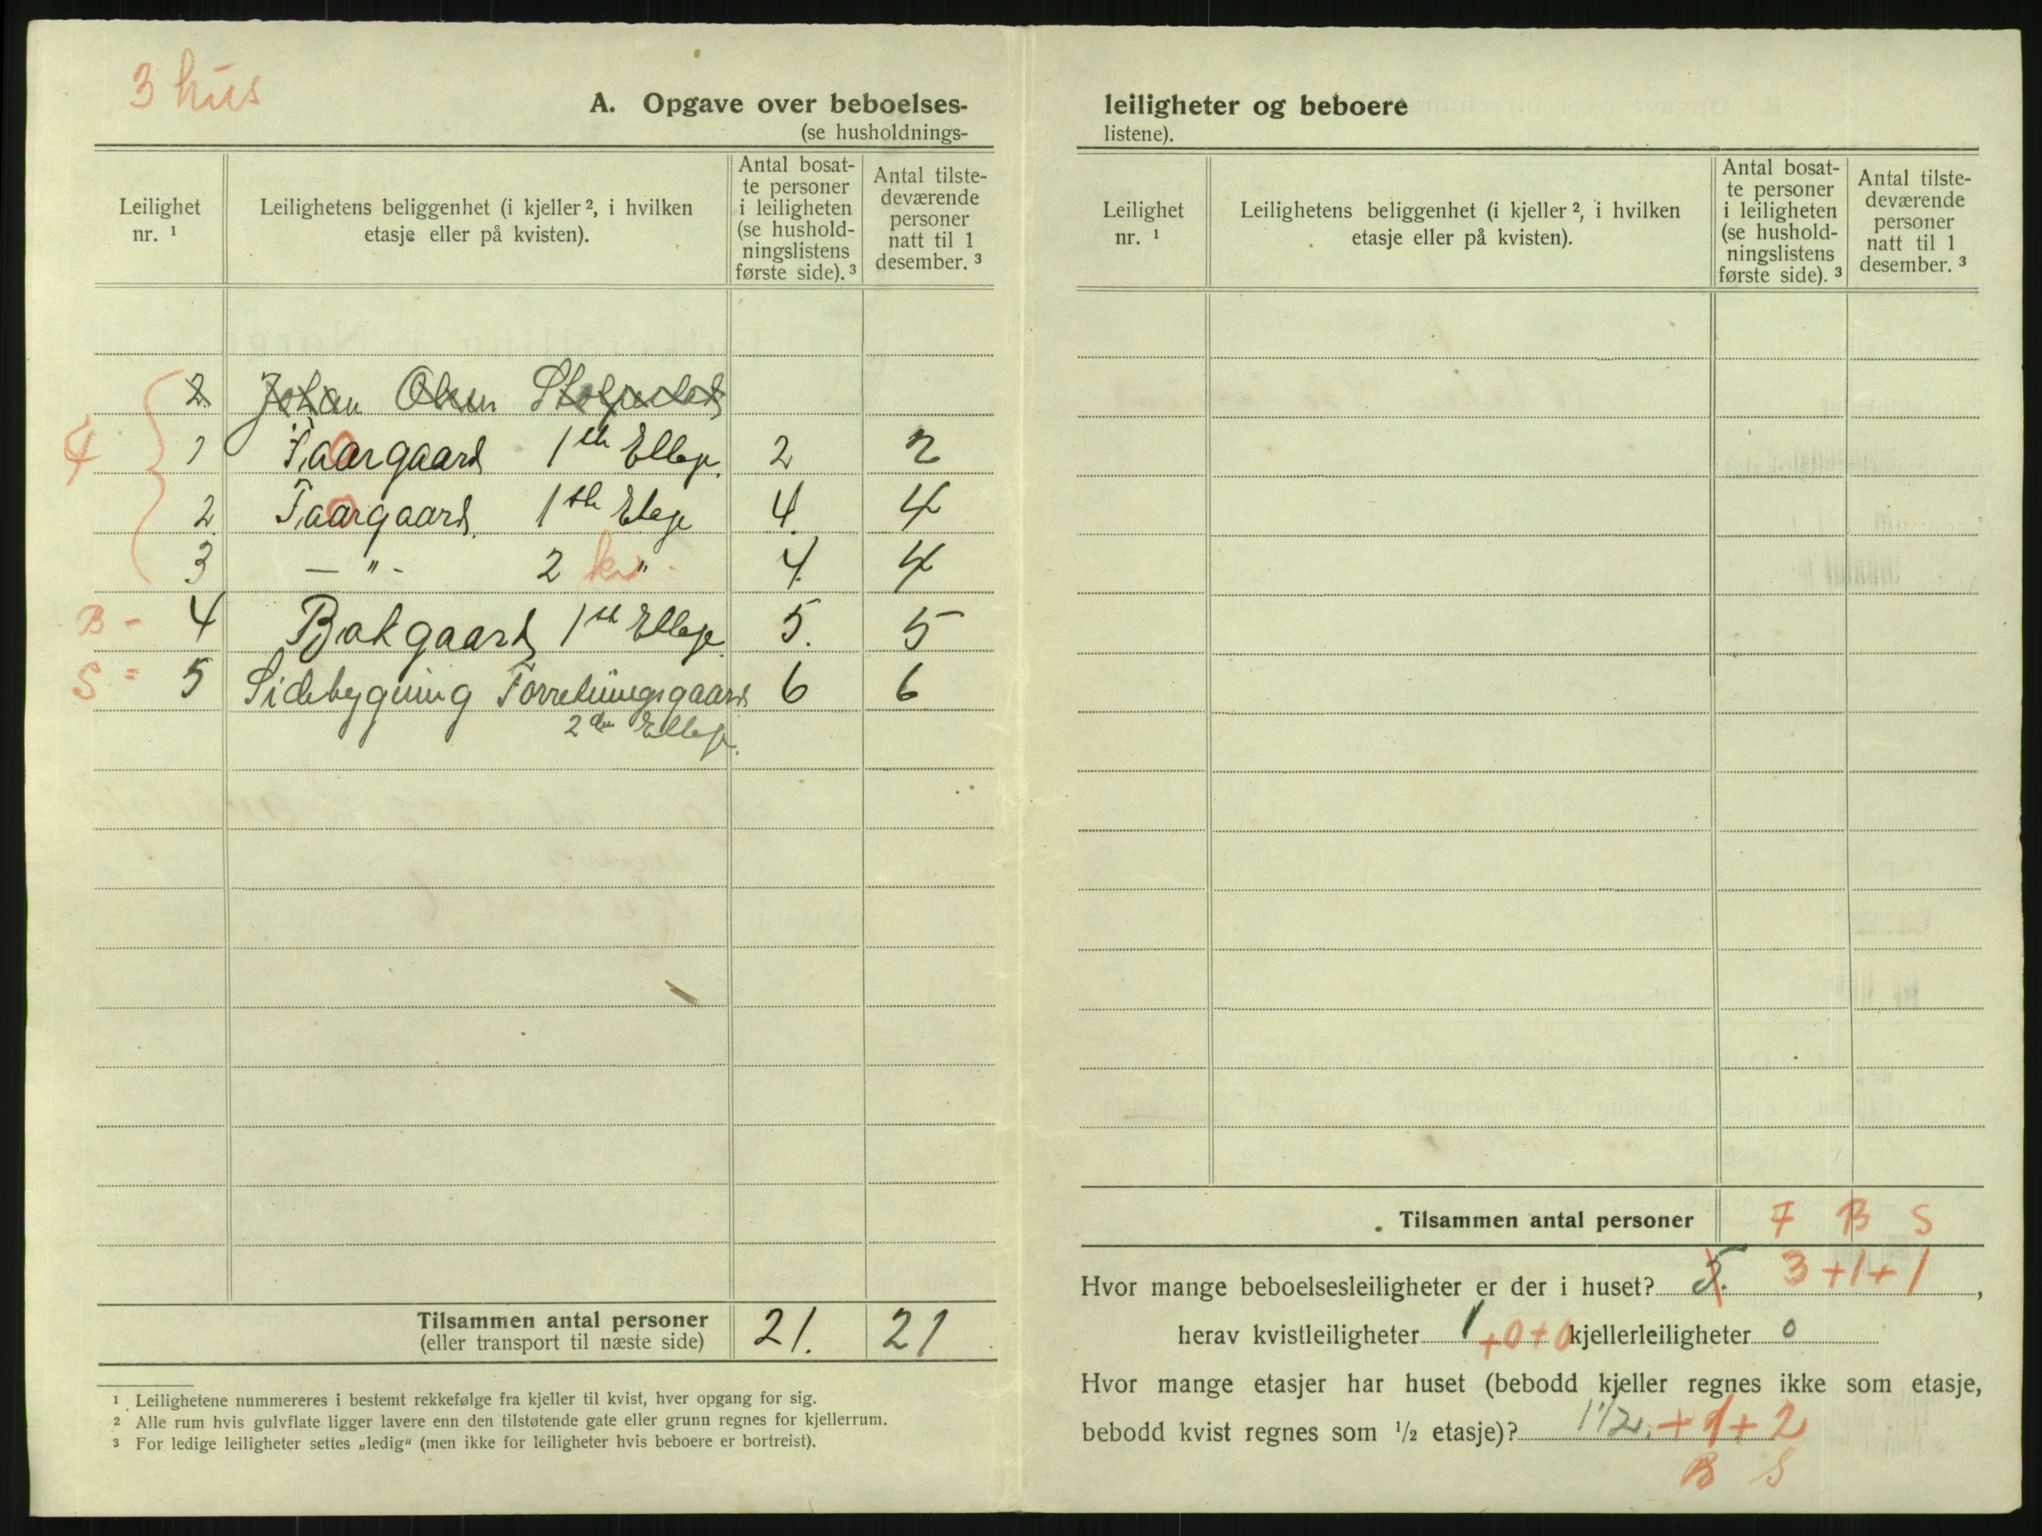 3 hus
A. Opgave over beboelses-
(se husholdnings-
Leilighet nr. ¹
Leilighetens beliggenhet (i kjeller ², i hvilken etasje eller på kvisten).
Antal bosatte personer i leiligheten (se husholdningslistens første side). ³
Antal tilstedeværende personer natt til 1 desember. ³
2 Johan Olsen
1 Faargaard 1ste Ettage. 2 2
2 Faargaard 1ste Etage 4. 4
3 — " - 2 kv " 4. 4
B - 4 Bakgaard 1ste Ettage. 5. 5
S = 5 Sidebygning Forretningsgaard 6 6
2den Ettage.
Tilsammen antal personer 21. 21
(eller transport til næste side)
¹ Leilighetene nummereres i bestemt rekkefølge fra kjeller til kvist, hver opgang for sig.
² Alle rum hvis gulvflate ligger lavere enn den tilstøtende gate eller grunn regnes for kjellerrum.
³ For ledige leiligheter settes „ledig“ (men ikke for leiligheter hvis beboere er bortreist).
leiligheter og beboere
listene).
Leilighet nr. ¹
Leilighetens beliggenhet (i kjeller ², i hvilken etasje eller på kvisten).
Antal bosatte personer i leiligheten (se husholdningslistens første side). ³
Antal tilstedeværende personer natt til 1 desember. ³
Tilsammen antal personer F B S
Hvor mange beboelsesleiligheter er der i huset? 5. 3 + 1 + 1,
herav kvistleiligheter 1 + 0 + 0 kjellerleiligheter 0
Hvor mange etasjer har huset (bebodd kjeller regnes ikke som etasje,
bebodd kvist regnes som ½ etasje)? 1 1/2. + 1 + 2
B S